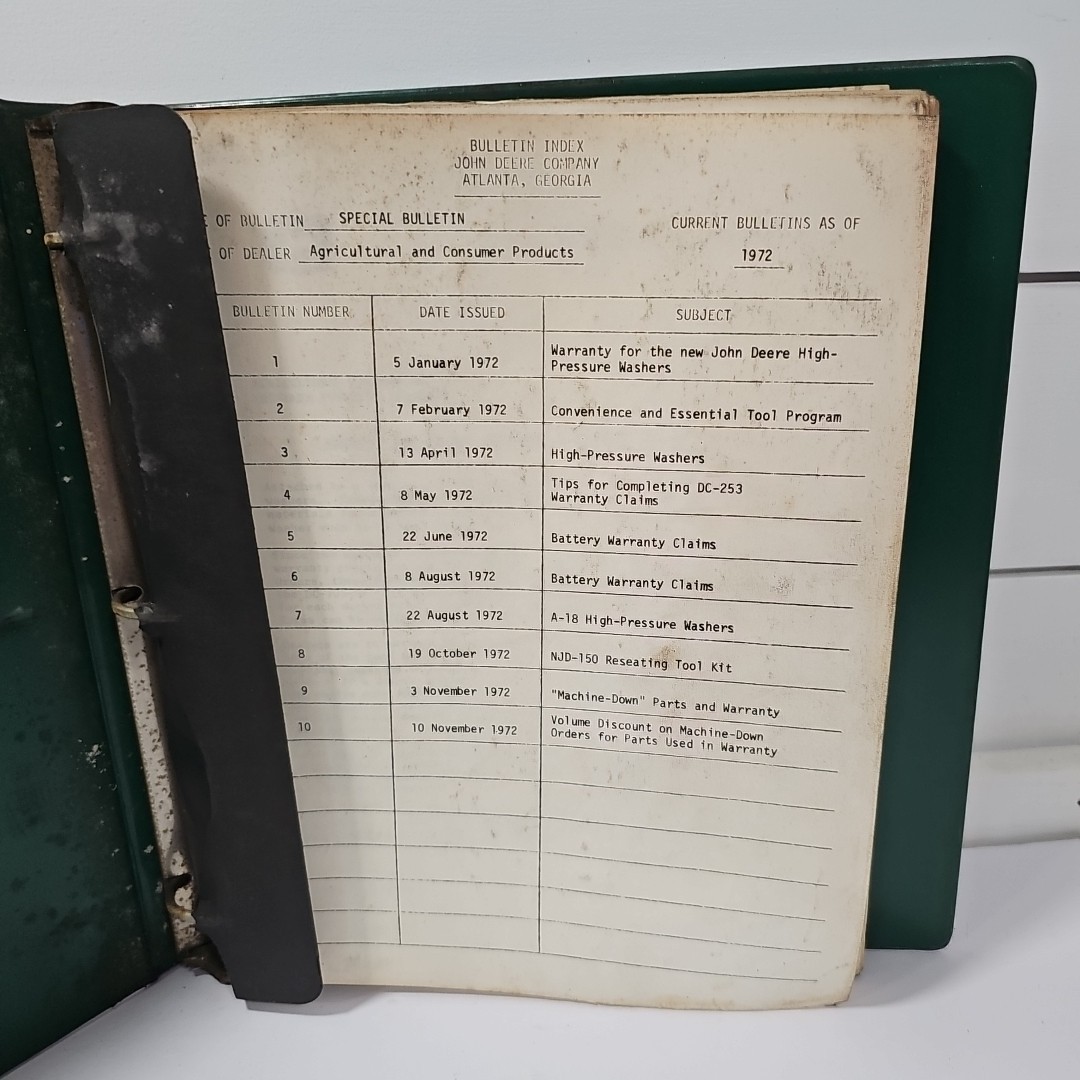 BULLETIN INDEX
JOHN DEERE COMPANY
ATLANTA, GEORGIA
OF BULLETIN SPECIAL BULLETIN
CURRENT BULLETINS AS OF
OF DEALER Agricultural and Consumer Products
1972
BULLETIN NUMBER DATE ISSUED SUBJECT
1 5 January 1972 Warranty for the new John Deere High-
Pressure Washers
2 7 February 1972 Convenience and Essential Tool Program
3 13 April 1972 High-Pressure Washers
4 8 May 1972 Tips for Completing DC-253
Warranty Claims
5 22 June 1972 Battery Warranty Claims
6 8 August 1972 Battery Warranty Claims
7 22 August 1972 A-18 High-Pressure Washers
8 19 October 1972 NJD-150 Reseating Tool Kit
9 3 November 1972 "Machine-Down" Parts and Warranty
10 10 November 1972 Volume Discount on Machine-Down
Orders for Parts Used in Warranty